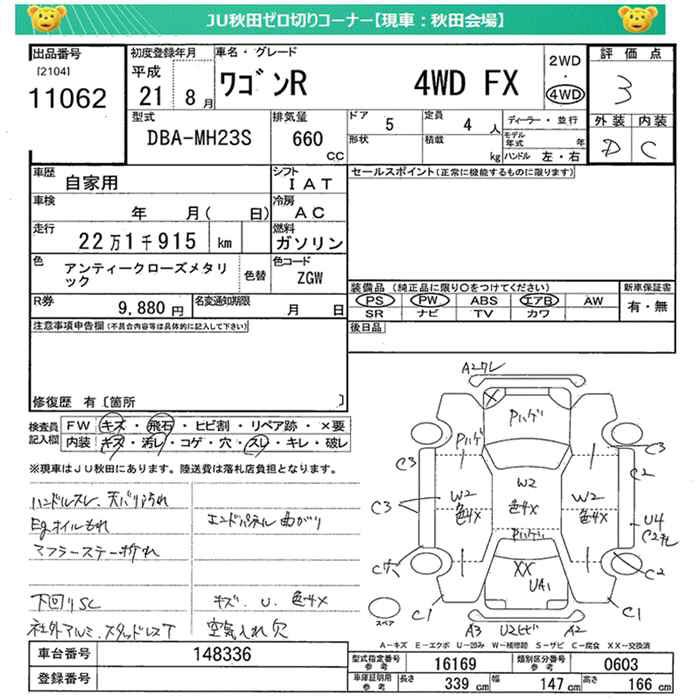 JU秋田ゼロ切りコーナー【現車：秋田会場】
出品番号
[2104]
11062
初度登録年月
平成
21 8月
車名・グレード
ワゴンR 4WD FX
2WD
・
4WD
評価点
3
外装 内装
D C
型式
DBA-MH23S
排気量
660
CC
ドア
5
定員
4 人
形状
積載
kg
ディーラー・並行
モデル年式 年
ハンドル 左・右
車歴
自家用
シフト
IAT
車検
年 月( 日)
冷房
AC
走行
22万1千915 km
燃料
ガソリン
色
アンティークローズメタリック
色替
色コード
ZGW
R券
9,880円
名変通知期限
月 日
セールスポイント(正常に機能するものに限ります)
装備品 (純正品に限り○をつけてください)
新車保証書
有・無
PS PW ABS エアB AW
SR ナビ TV カワ
後日品
注意事項申告欄(不具合内容等は具体的に記入して下さい)
修復歴 有〔箇所 〕
検査員記入欄
FW キズ・飛石・ヒビ割・リペア跡・×要
内装 キズ・汚レ・コゲ・穴・スレ・キレ・破レ
※現車はJU秋田にあります。陸送費は落札店負担となります。
ハンドルスレ、天バリ汚れ
Egオイルもれ
エンドパネル曲がり
マフラーステー折れ
下回りSC
キズ、U、色キメ
社外アルミ、スタッドレスT
空気入れ欠
A2ワレ
X
Pハゲ
Pハゲ
C3
C3
C2
W2
W2
W2
色キメ
色キメ
色キメ
C3
U4
Pハゲ
XX
UA1
C2
C1
C1
スペア
A3
U2ヒビ
A2
A-キズ E-エクボ U-凹み W-補修跡 S-サビ C-腐食 XX-交換済
車台番号
148336
登録番号
型式指定番号
参考
16169
類別区分番号
参考
0603
車庫証明用
参考
長さ
339 cm
幅
147 cm
高さ
166 cm